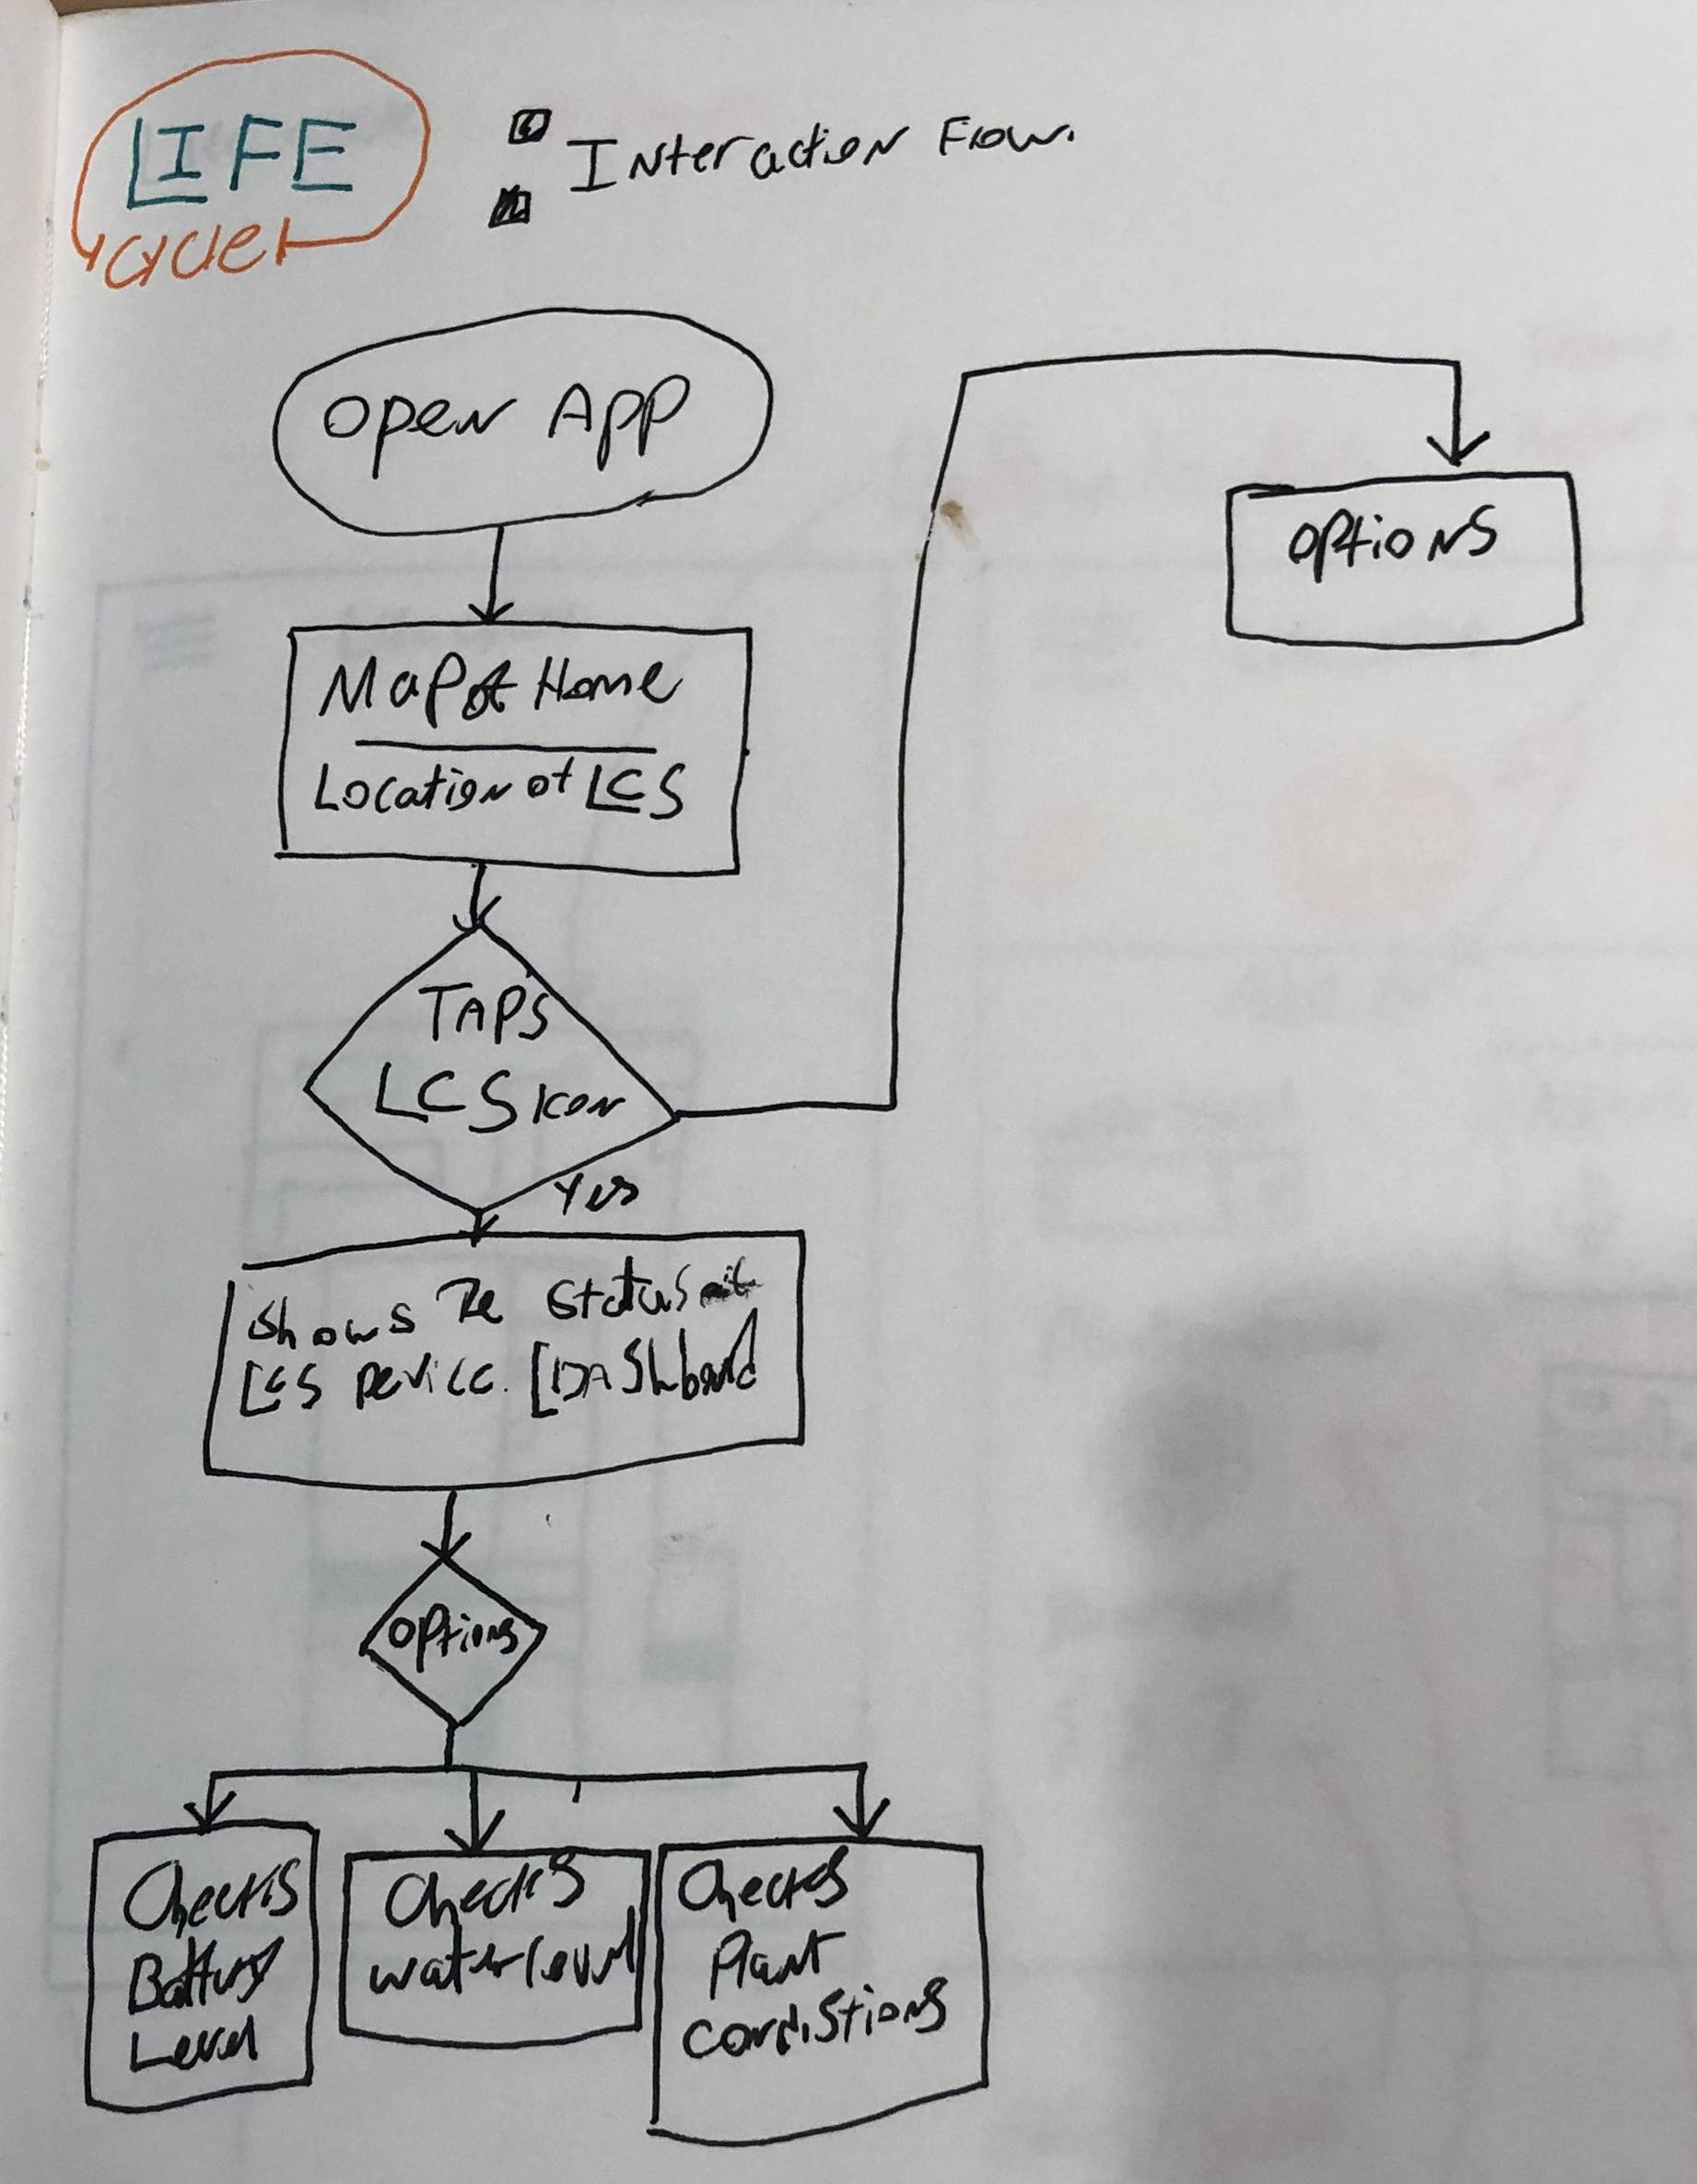 LIFE
cycle
Interaction Flow.
Open App
Map of Home
Location of LCS
TAPS
LCS Icon
Yes
Shows The Status
LCS Device. [DAShboard
options
Checks
Battery
Level
Checks
water level
Checks
Plant
Condistions
options